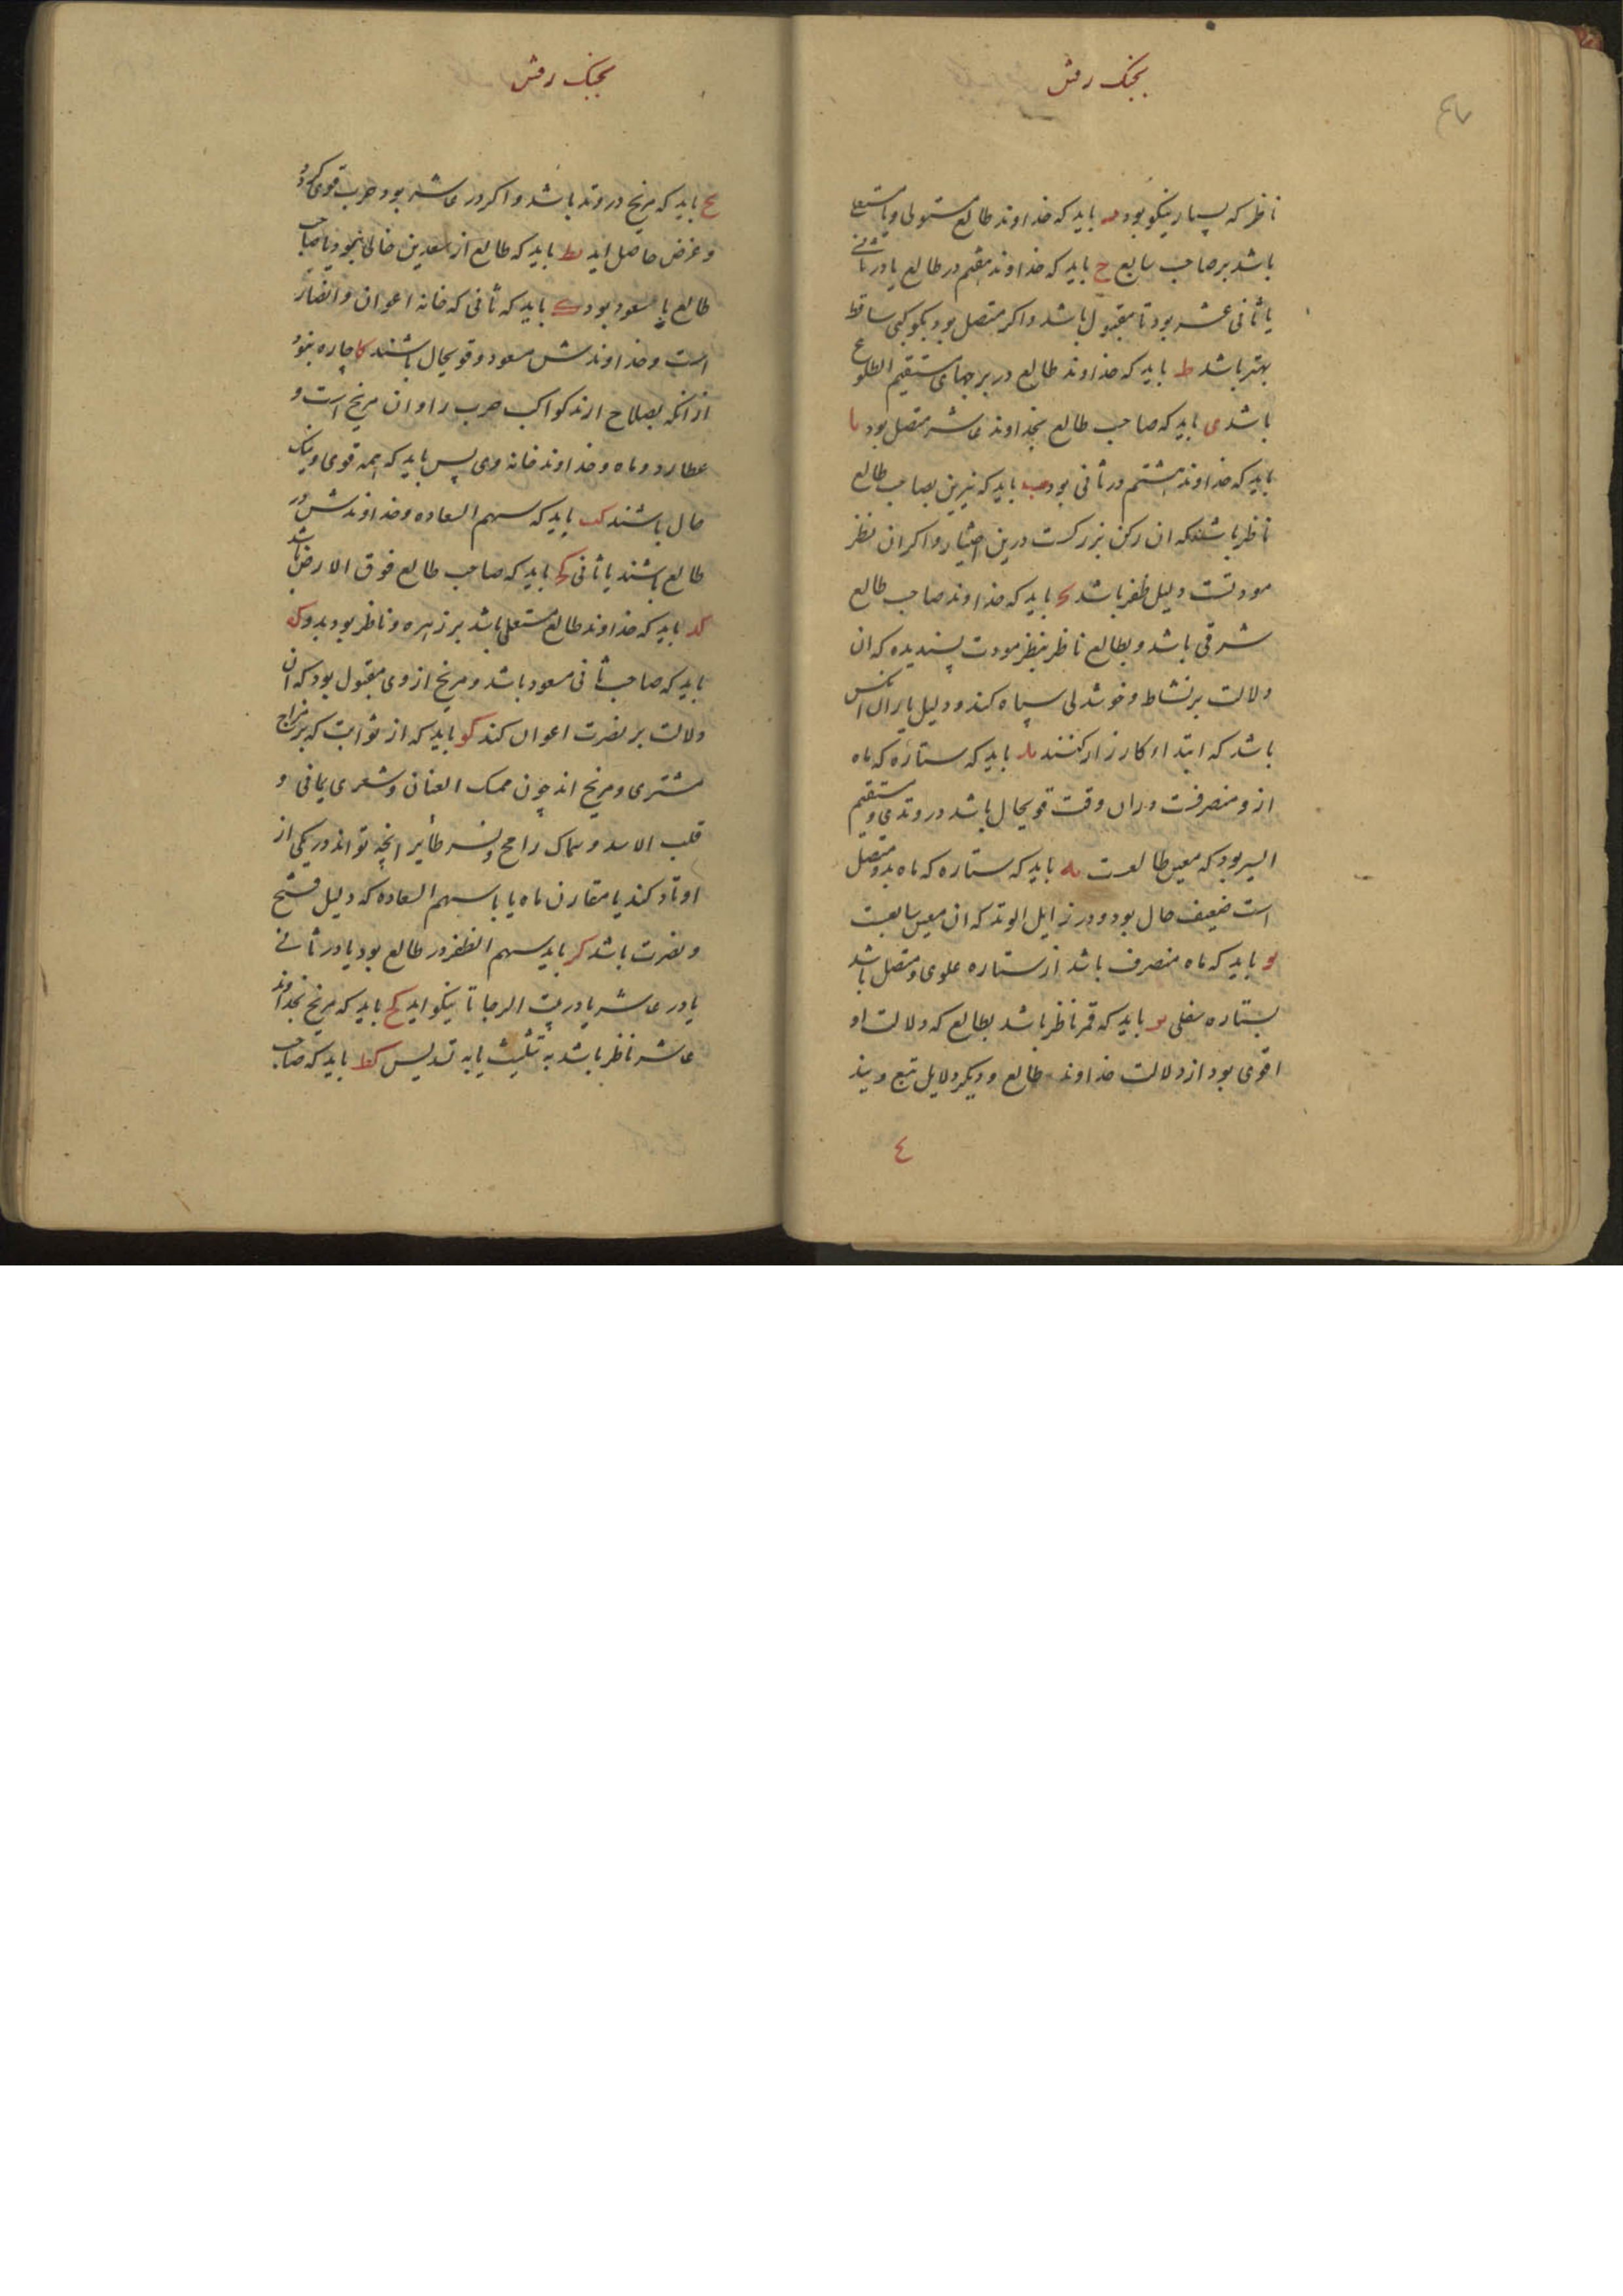 بجنک رفتن
ناظر که بسیار نیکو بود باید که خداوند طالع مستولی و یا مستعلی
باشد بر صاحب سابع ح باید که خداوند هفتم در طالع یا در ثانی
یا ثانی عشر بود تا مقبول باشد و اکر متصل بود بکوکبی ساقط
بهتر باشد ط باید که خداوند طالع در برجهای مستقیم الطلوع
باشد ی باید که صاحب طالع بخداوند عاشر متصل بود یا
باید که خداوند هشتم در ثانی بود یب باید که نیرین بصاحب طالع
ناظر باشند که ان رکن بزرکست درین اختیار و اکر ان نظر
مودتست دلیل ظفر باشد یج باید که خداوند صاحب طالع
شرقی باشد و بطالع ناظر بنظر مودت پسندیده که ان
دلالت بر نشاط و خوشدلی سپاه کند و دلیل یاران انکس
باشد که ابتداء کارزار کنند ید باید که ستاره که ماه
ازو منصرفست دران وقت قویحال باشد در وتدی و مستقیم
السیر بود که معین طالعست یه باید که ستاره که ماه بدو متصل
است ضعیف حال بود و در زایل الوتد که ان معین سابعست
یو باید که ماه منصرف باشد از ستاره علوی و متصل باشد
بستاره سفلی یز باید که قمر ناظر باشد بطالع که دلالت او
اقوی بود از دلالت خداوند طالع و دیکر دلایل تبع ویند
٤
بجنک رفتن
یح باید که مریخ در وتد باشد و اکر در عاشر بود حرب قوی کردد
و غرض حاصل اید یط باید که طالع از سعدین خالی نبود یا صاحب
طالع با سعود بود ک باید که ثانی که خانه اعوان و انصار
است و خداوندش مسعود و قویحال باشند کا چاره نبود
از انکه بصلاح ارند کواکب حرب را و ان مریخ است و
عطارد و ماه و خداوند خانه وی پس باید که همه قوی و نیک
حال باشند کب باید که سهم السعاده و خداوندش در
طالع باشند یا ثانی کج باید که صاحب طالع فوق الارض باشد
کد باید که خداوند طالع مستعلی باشد بر زهره و ناظر بود بدو که
باید که صاحب ثانی مسعود باشد و مریخ از وی مقبول بود که ان
دلالت بر نصرت اعوان کند کو باید که از ثوابت که بر مزاج
مشتری و مریخ اند چون ممسک العنان و شعری یمانی و
قلب الاسد و سماک رامح و نسر طایر انچه تواند در یکی از
اوتاد کند یا مقارن ماه یا با سهم السعاده که دلیل فتح
و نصرت باشد کز باید سهم الظفر در طالع بود یا در ثانی
یا در عاشر یا در بیت الرجا تا نیکو اید کح باید که مریخ بخداوند
عاشر ناظر باشد به تثلیث یا به تسدیس کط باید که صاحب